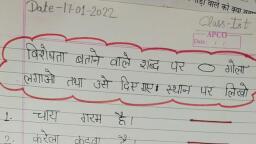 Date-17-01-2022
Class-Ist
APCO
विशेषता बताने वाले शब्द पर ◯ गोला
लगाओ तथा उसे दिए गए स्थान पर लिखो
1. चाय गरम है।
2. करेला कड़वा है।